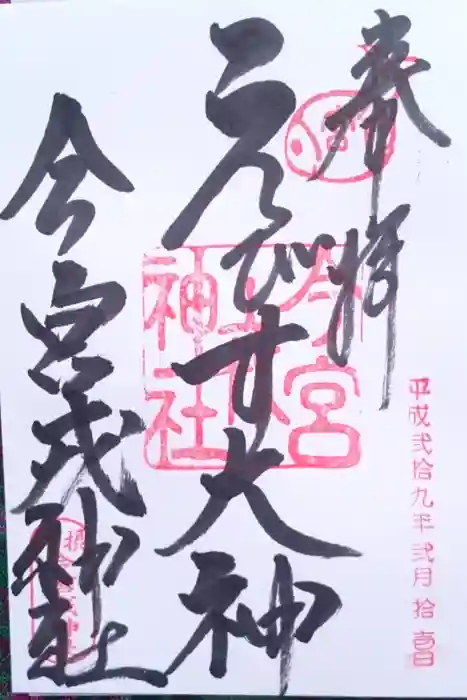 奉拝
ゑびす大神
今宮戎神社
今宮戎神社
平成弐拾九年弐月拾壱日